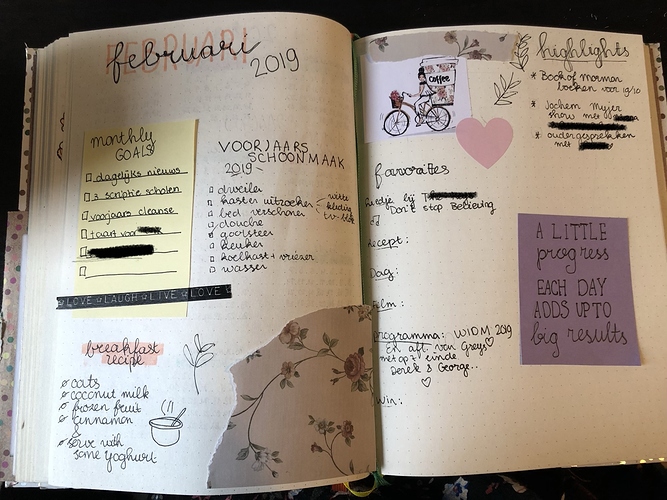 FEBRUARI
februari
2019
monthly
GOALS
dagelijks nieuws
3 scriptie scholen
voorjaars cleanse
taart voor
LOVE LAUGH LIVE LOVE
VOORJAARS
SCHOONMAAK
2019
dweilen
kasten uitzoeken
witte
kleding
bed verschonen
douche
gootsteen
keuken
koelkast + vriezer
wassen
breakfast
recipe
oats
coconut milk
frozen fruit
cinnamon
&
serve with
some yoghurt
Coffee
highlights
* Book of Mormon
boeken voor
* Jochem Myjer
show met
* oudergesprekken
met
favorites
liedje bij
Don't stop Believing
recept:
Dag:
film:
programma: WIDM 2019
En afl. van Greys
met op't einde
Derek & George..
A LITTLE
progress
EACH DAY
ADDS UP TO
big results